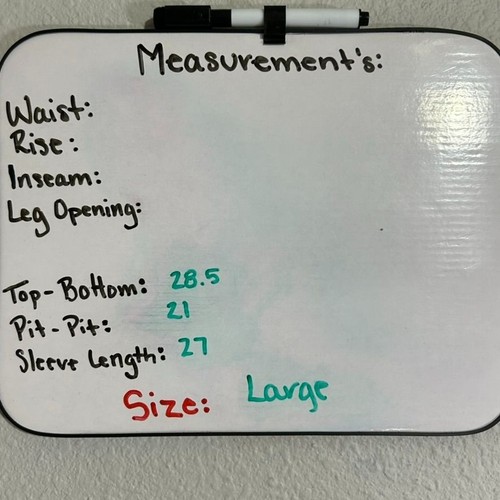 Measurement's:
Waist:
Rise:
Inseam:
Leg Opening:
Top-Bottom: 28.5
Pit-Pit: 21
Sleeve Length: 27
Size: Large